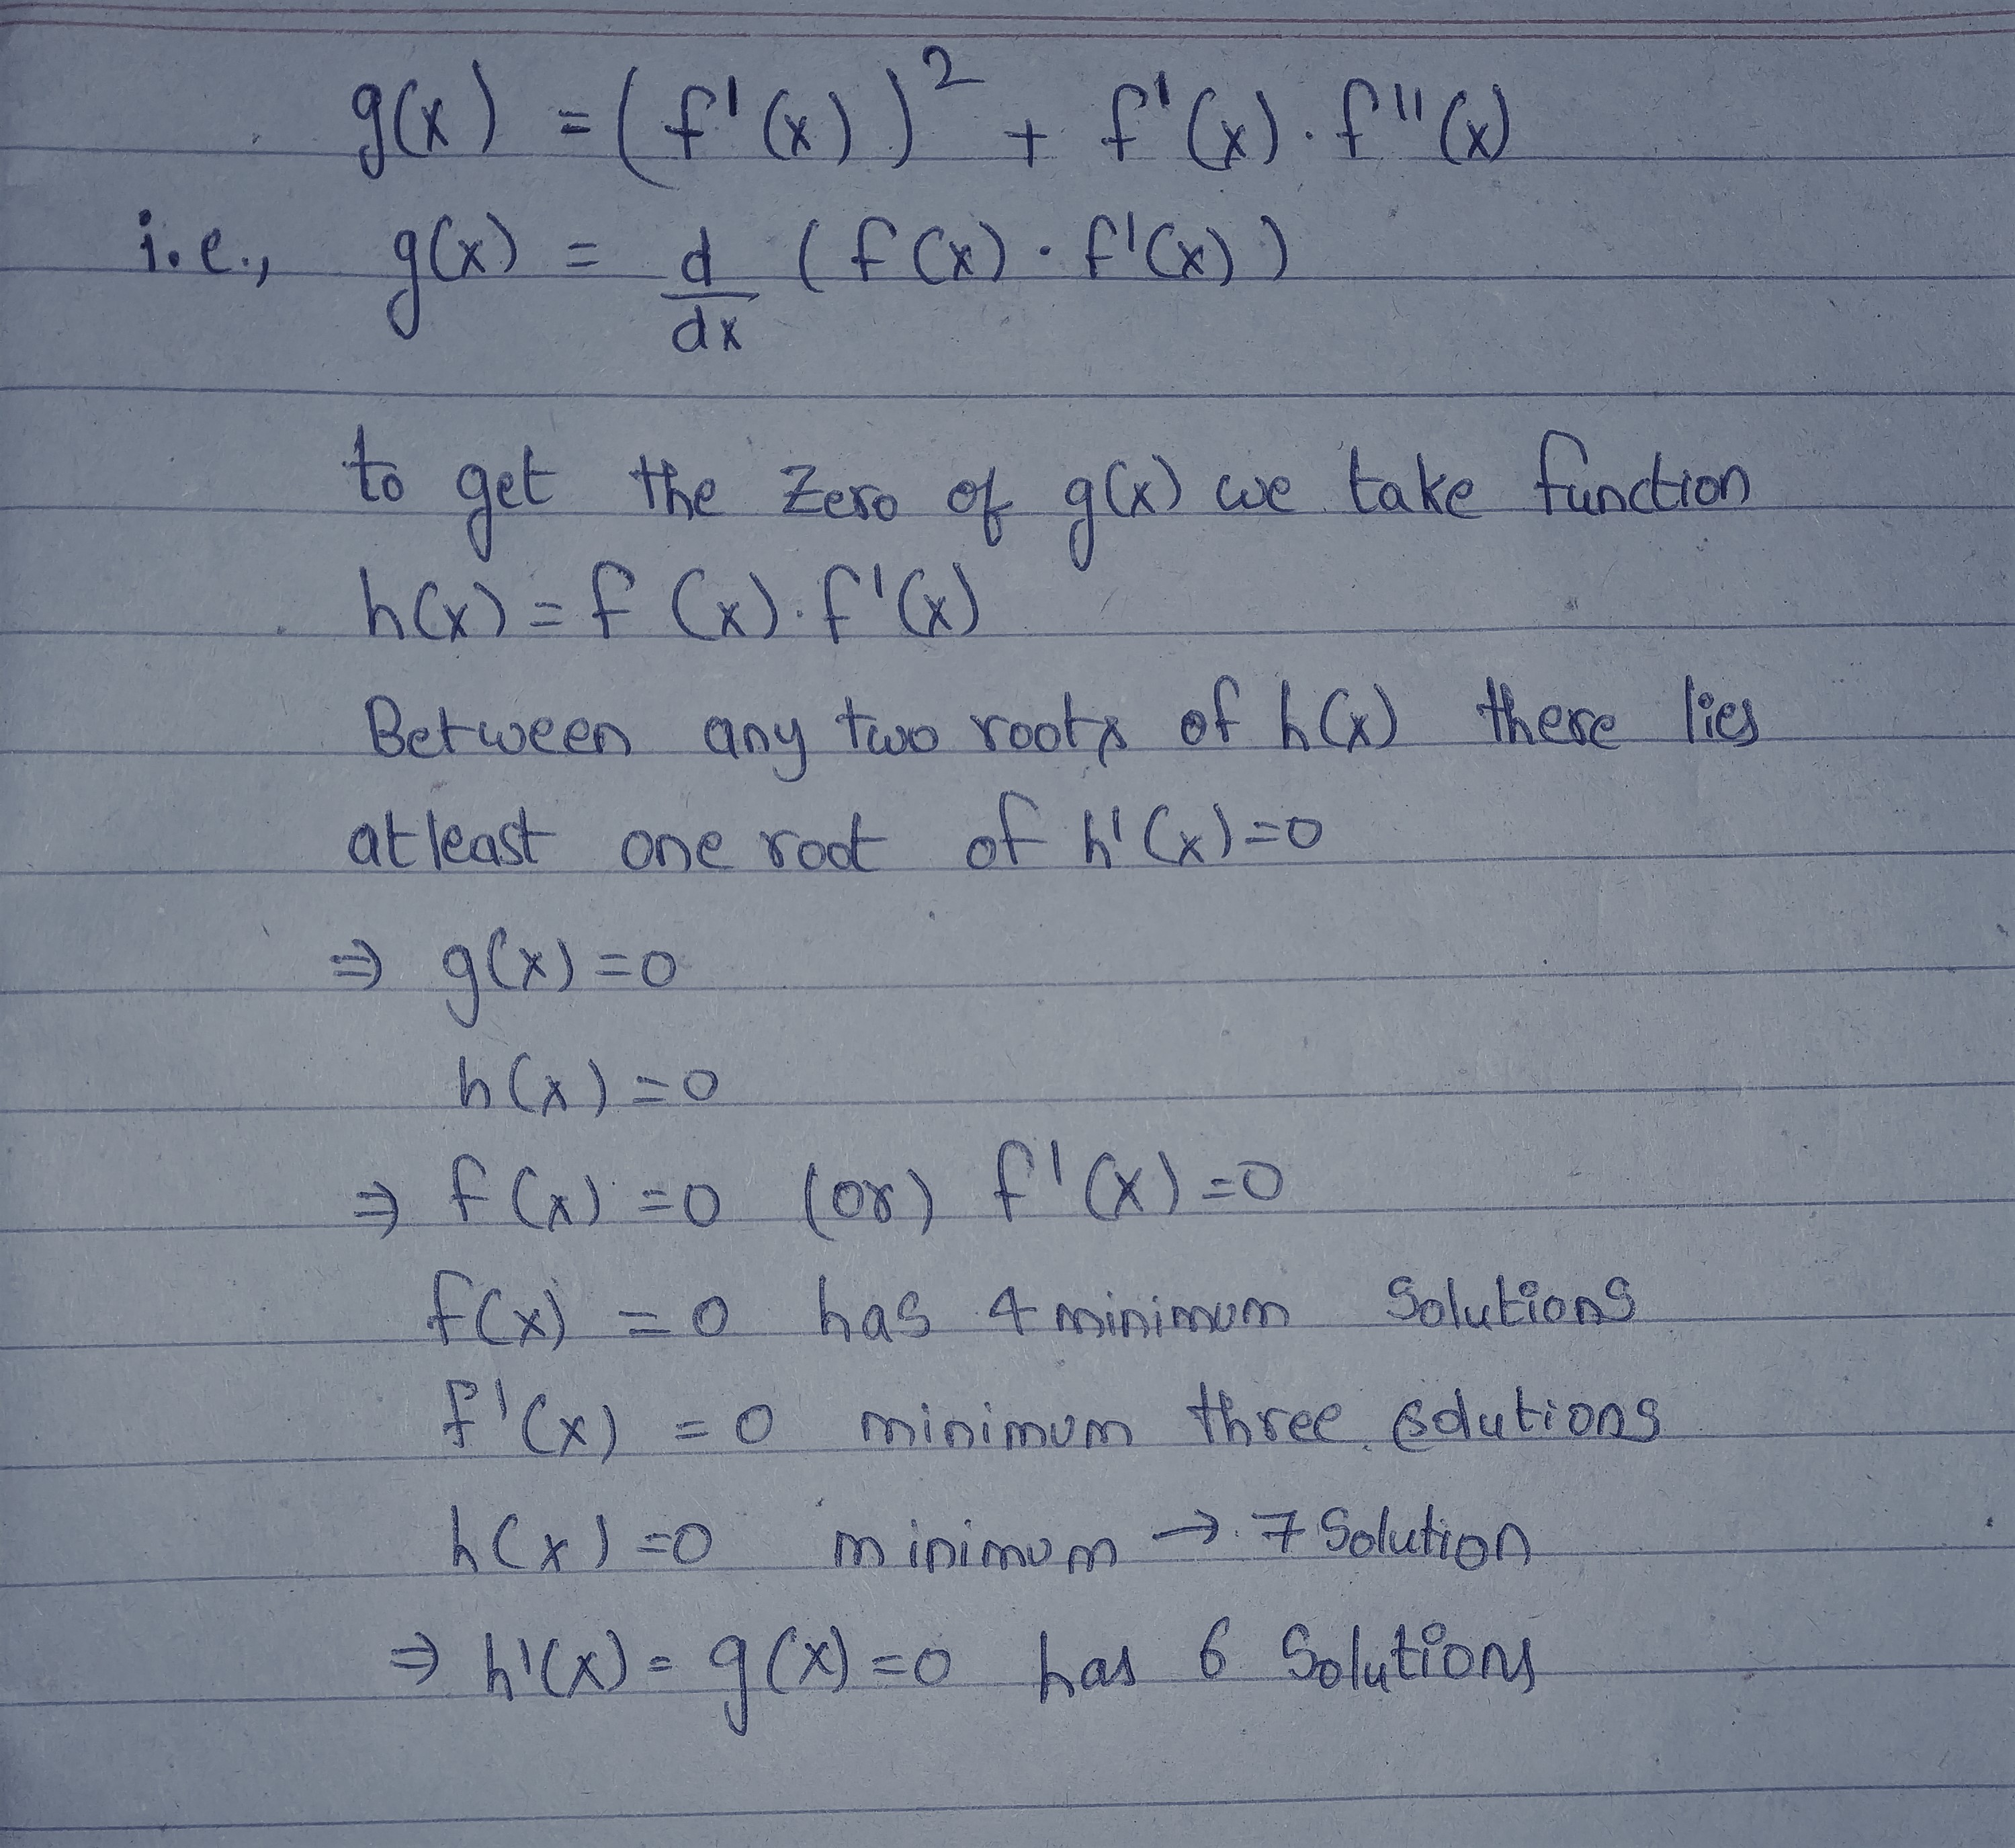 g(x) = (f'(x))² + f'(x) . f''(x)
i.e., g(x) = d/dx (f(x) . f'(x))
to get the zero of g(x) we take function
h(x) = f (x) . f'(x)
Between any two roots of h(x) there lies
atleast one root of h'(x)=0
⇒ g(x)=0
h(x)=0
⇒ f(x)=0 (or) f'(x)=0
f(x) = 0 has 4 minimum solutions
f'(x) = 0 minimum three solutions
h(x)=0 minimum → 7 Solution
⇒ h'(x) = g(x)=0 has 6 Solutions